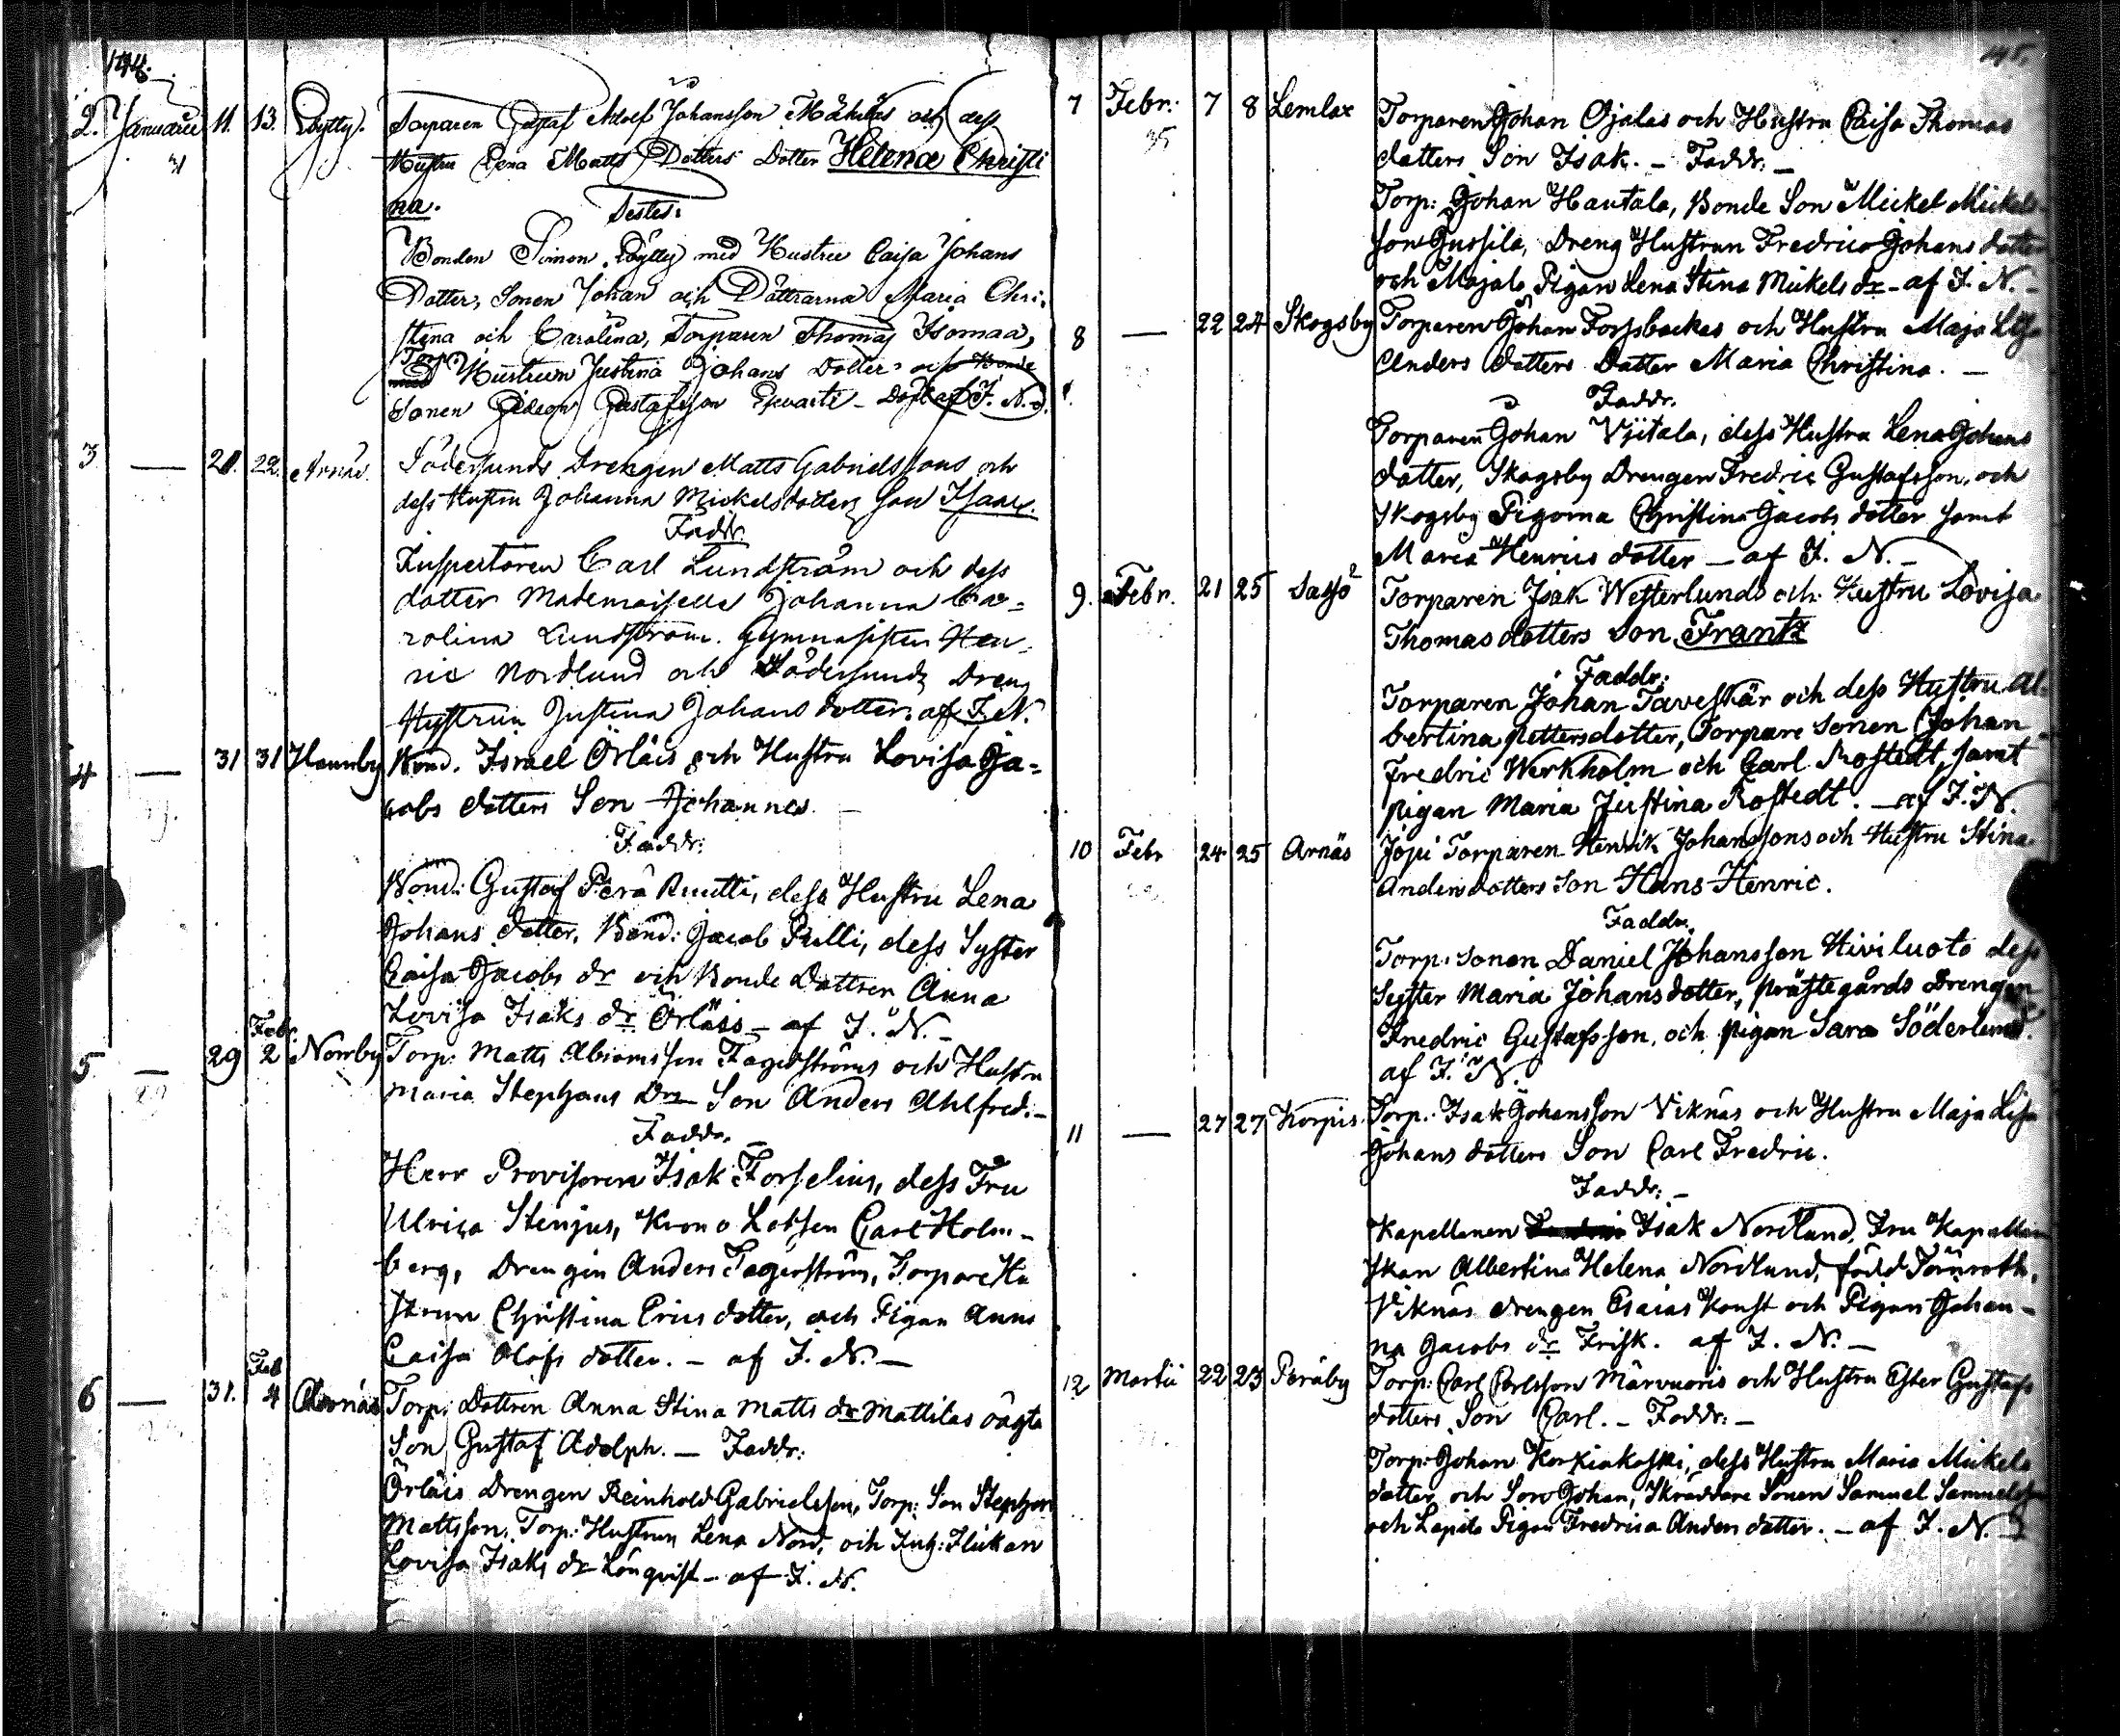 144.
2. Januarii 11. 13. Pytty. Torparen Gustaf Adolf Johansson Mäkiläs och dess
Hustru Lena Matts Dotters Dotter Helena Christi
na. Testes:
Bonden Simon Pytty med Hustru Caisa Johans
Dotter, Sonen Johan och Döttrarna Maria Chri-
stina och Carolina, Torparen Thomas Isomaa,
Torp. Hustrun Justina Johans Dotter och Bonde
Sonen Gideon Gustafsson - Döpt af I. N.
3 — 20. 22. Arnäs. Södersunds Drengen Matts Gabrielssons och
dess Hustru Johanna Mickelsdotters Son Isaac.
Faddr.
Inspectoren Carl Lundström och dess
dotter Mademoiselle Johanna Ca=
rolina Lundström. Gymnasisten Hen=
ric Nordlund och Södersunds Dreng
Hustrun Justina Johans dotter. af I. N.
4 — 31 31 Hannby Bond. Israel Örläis och Hustru Lovisa Ja=
cobs dotters Son Johannes.
Faddr:
Bond: Gustaf Perä Ruutti, dess Hustru Lena
Johans dotter, Bond: Jacob Pulli, dess Syster
Caisa Jacobs dr och Bonde Dottren Anna
Lovisa Isaks dr Örläis - af I. N. -
5 — 29 Febr. 2 Norrby Torp: Matts Abramsson Fagerströms och Hustru
Maria Stephans Drs Son Anders Ahlfred. -
Faddr.
Herr Provisoren Isak Forselius, dess Fru
Ulrica Stenjus, Krono Lotsen Carl Holm-
berg, Drengen Anders Fagerström, Torpare Hu
strun Christina Erics dotter, och Pigan Anna
Caisa Olofs dotter. - af I. N. -
6 — 31. Feb 4 Arnäs Torp: Dottren Anna Stina Matts dr Mattilas oägta
Son Gustaf Adolph. - Faddr:
Örläis Drengen Reinhold Gabrielsson, Torp: Son Stephan
Mattsson, Torp: Hustrun Lena Nord, och Inh: Flickan
Lovisa Isaks dr Lönqvist - af I. N.
145.
7 Febr: 7 8 Lemlax Torparen Johan Ojalas och Hustru Caisa Thomas
dotters Son Isak. - Faddr: -
Torp: Johan Hautala, Bonde Son Mickel Mickels
son Gussila, Dreng Hustrun Fredrica Johans dotter
och Majala Pigan Lena Stina Mickels dr - af I. N. -
8 — 22 24 Skogsby Torparen Johan Forsbackas och Hustru Maja Lisa
Anders dotters Dotter Maria Christina. -
Faddr.
Torparen Johan Yjitalo, dess Hustru Lena Johans
dotter, Skogsby Drengen Fredric Gustafsson, och
Skogsby Pigorna Christina Jacobs dotter samt
Maria Henrics dotter - af I. N. -
9. Febr. 21 25 Sassö Torparen Isak Westerlunds och Hustru Lovisa
Thomas dotters Son Frantz
Faddr:
Torparen Johan Taveskär och dess Hustru Al-
bertina Pettersdotter, Torpare Sonen Johan
Fredric Werkholm och Carl Rostedt, samt
pigan Maria Justina Rostedt. - af I. N.
10 Febr 24 25 Arnäs Jöpi Torparen Henrik Johanssons och Hustru Stina
Andersdotters Son Hans Henric.
Faddr.
Torp: Sonen Daniel Johansson Hiviluoto dess
Syster Maria Johansdotter, Prästegårds Drengen
Fredric Gustafsson, och pigan Sara Söderlund.
af I. N.
11 — 27 27 Korpis. Torp: Isak Johansson Viknäs och Hustru Maja Lisa
Johans dotters Son Carl Fredric.
Faddr: -
Kapellanen Isak Nordlund, Fru Kapellan
skan Albertina Helena Nordlund, född Törnroth,
Viknäs drengen Esaias Konst och Pigan Johan-
na Jacobs dr Frisk. af I. N. -
12 Martii 22 23 Peräby Torp: Carl Carlsson Märvuoris och Hustru Ester Gustafs
dotters Son Carl. - Faddr: -
Torp: Johan Korkiakoski, dess Hustru Maria Mickels
dotter och Son Johan, Skräddare Sonen Samuel Samuelsson
och Lapila Pigan Fredrica Anders dotter. - af I. N.